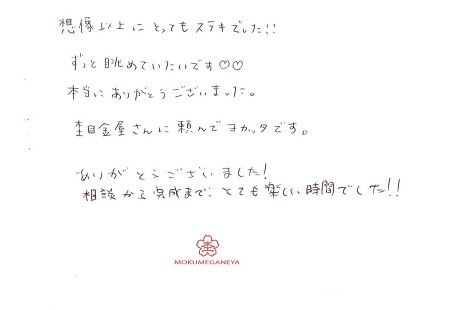 想像以上にとってもステキでした!!
ずっと眺めていたいです♡♡
本当にありがとうございました。
杢目金屋さんに頼んでヨカッタです。
ありがとうございました!
相談から完成まで、とても楽しい時間でした!!
杢
MOKUMEGANEYA